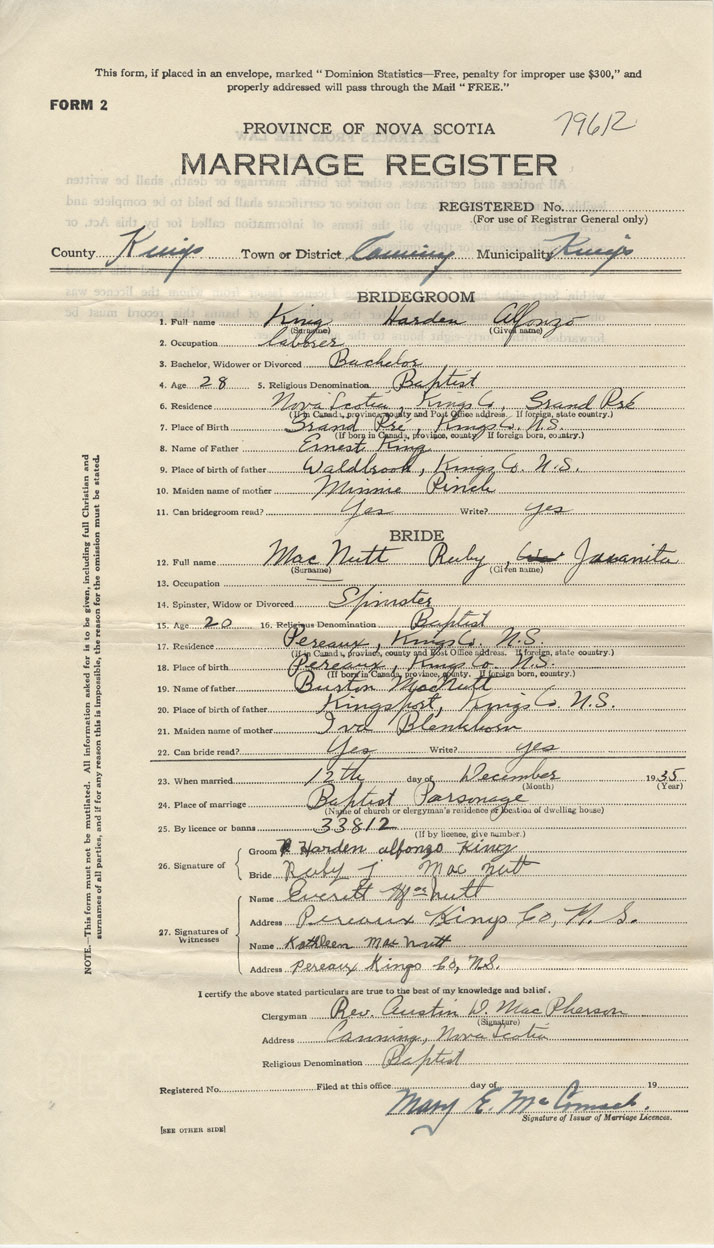 This form, if placed in an envelope, marked "Dominion Statistics—Free, penalty for improper use $300," and
properly addressed will pass through the Mail "FREE."
FORM 2
79612
PROVINCE OF NOVA SCOTIA
MARRIAGE REGISTER
REGISTERED No.
(For use of Registrar General only)
County Kings Town or District Canning Municipality Kings
BRIDEGROOM
1. Full name King Harden Alfonzo
(Surname) (Given name)
2. Occupation laborer
3. Bachelor, Widower or Divorced Bachelor
4. Age 28 5. Religious Denomination Baptist
6. Residence Nova Scotia, Kings Co, Grand Pré
(If in Canada, province, county and Post Office address. If foreign, state country.)
7. Place of Birth Grand Pré, Kings Co. N.S.
(If born in Canada, province, county. If foreign born, country.)
8. Name of Father Ernest King
9. Place of birth of father Waldbrook, Kings Co. N.S.
10. Maiden name of mother Minnie Pinch
11. Can bridegroom read? Yes Write? yes
BRIDE
12. Full name MacNutt Ruby, Javanita
(Surname) (Given name)
13. Occupation —
14. Spinster, Widow or Divorced Spinster
15. Age 20 16. Religious Denomination Baptist
17. Residence Pereaux, Kings Co. N.S.
(If in Canada, province, county and Post Office address. If foreign, state country.)
18. Place of birth Pereaux, Kings Co. N.S.
(If born in Canada, province, county. If foreign born, country.)
19. Name of father Burton MacNutt
20. Place of birth of father Kingsport, Kings Co. N.S.
21. Maiden name of mother Iva Blenkhorn
22. Can bride read? Yes Write? yes
23. When married 12th day of December 1935
(Month) (Year)
24. Place of marriage Baptist Parsonage
(Name of church or clergyman's residence or location of dwelling house)
25. By licence or banns 33812
(If by license, give number.)
26. Signature of Groom Harden alfonzo King
Bride Ruby J MacNutt
27. Signatures of Witnesses Name Everett MacNutt
Address Pereaux Kings Co, N.S.
Name Kathleen MacNutt
Address Pereaux Kings Co, N.S.
I certify the above stated particulars are true to the best of my knowledge and belief.
Clergyman Rev. Austin D. MacPherson
(Signature)
Address Canning, Nova Scotia
Religious Denomination Baptist
Registered No. Filed at this office day of 19
Mary E.
Signature of Issuer of Marriage Licences.
[SEE OTHER SIDE]
NOTE.—This form must not be mutilated. All information asked for is to be given, including full Christian and
surnames of all parties, and if for any reason this is impossible, the reason for the omission must be stated.